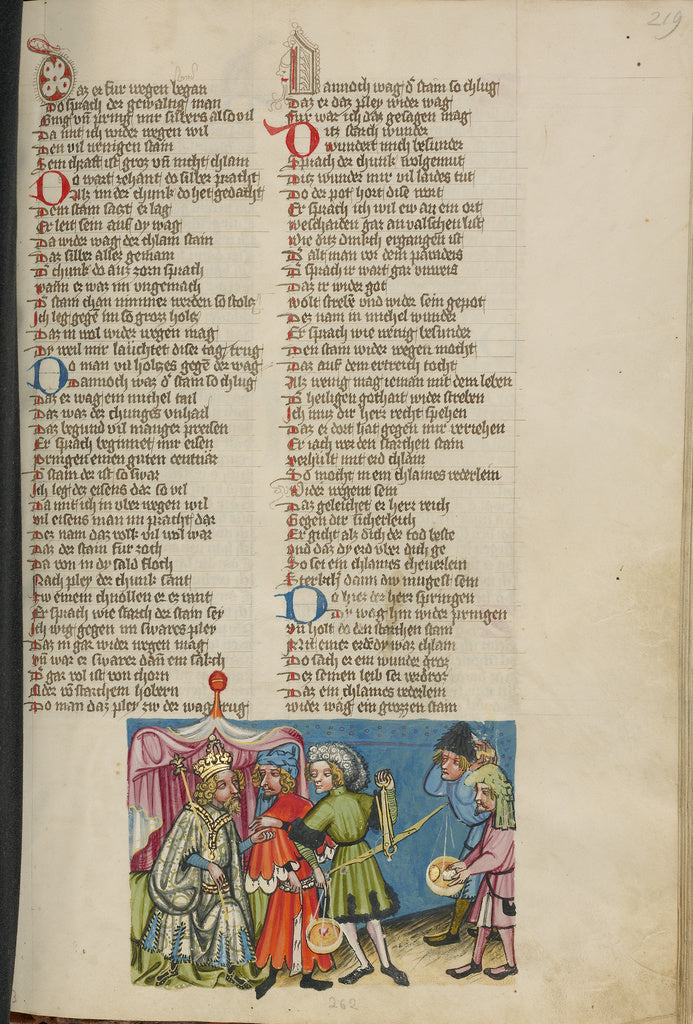 219
Daz er fur wegen began
Do sprach der gewaltig man
Ging vñ pring mir silbers also vil
Da mit ich wider wegen wil
Den vil wenigen stain
Sein chraft ist groz vñ nicht chlain
Do wart zehant do silber pracht
Als im der chunk do het gedacht
Dem stain sagt er lag
Er leit sein auf dy wag
Da wider wag der chlain stain
Daz silber alles gemain
Dˀ chunk do auz zorn sprach
wann er waz im ungemach
Dˀ stain chan nimmer werden so stolz
Ich leg gegen im so groz holz
Daz in wol wider wegen mag
Dy weil mir lauchtet diser tag trug
Do man vil holzes gegē der wag
Dannoch waz dˀ stain so chlug
Daz er wag ein michel tail
Daz waz der chunges vnhail
Daz begund vil manger preisen
Er sprach beginnet mir eisen
Pringen einen guten centnar
Dˀ stain der ist so swar
Ich leg der eisens dar so vil
Da mit ich in vber wegen wil
vil eisens man im pracht dar
Dez nam daz volk vil wol war
Daz der stain fur zoch
Da von in dy sald floch
Nach pley der chunk sant
Ew einem chnollen er ez vant
Er sprach wie starch der stain sey
Ich wig gegen im swares pley
Daz in gar wider wegen mag
vñ war er swarer dañ ein sakch
Dˀ gar vol ist von chorn
Oder võ starchem holern
Do man daz pley zv der wag trug
Dannoch wag dˀ stain so chlug
Daz er daz pley wider wag
Fur war ich daz gesagen mag
Ditz starch wunder
wundert mich besunder
Sprach der chunk wolgemut
Ditz wunder mir vil laides tut
Do der pot hort dise wort
Er sprach ich wil ew an ein ort
Beschaiden gar an valschen list
Wie ditz dinkch ergangen ist
Dˀ alt man vor dem paradeis
Dˀ sprach ir wart gar vnweis
Daz ir wider got
wolt streben vnd wider sein gepot
Dez nam in michel wunder
Er sprach wie wenig besunder
Den stain wider wegen mocht
Daz auf dem ertreich tocht
Alz wenig mag ieman mit dem leben
Dˀ heiligen gothait wider streben
Ich muz dir herr recht spehen
Daz er dort hat gegen mir veriehen
Er iach wer den starchen stain
verhult mit erd chlain
So mocht in ein chlaines vederlein
Wider wegent sein
Daz geleichet er herr reich
Gegen dir sicherleich
Er gicht als dich der tod beste
Und daz dy erd vber dich ge
So sei ein chlaines cheuerlein
Sterkch dann dw mugest sein
Do hiez der herr springen
Dy wag hin wider pringen
vñ holt do den starchen stain
Mit einer erd dy war chlain
Do sach er ein wunder groz
Dez seinen leib ser verdroz
Daz ein chlaines vederlein
wider wag ein grozzen stain
262